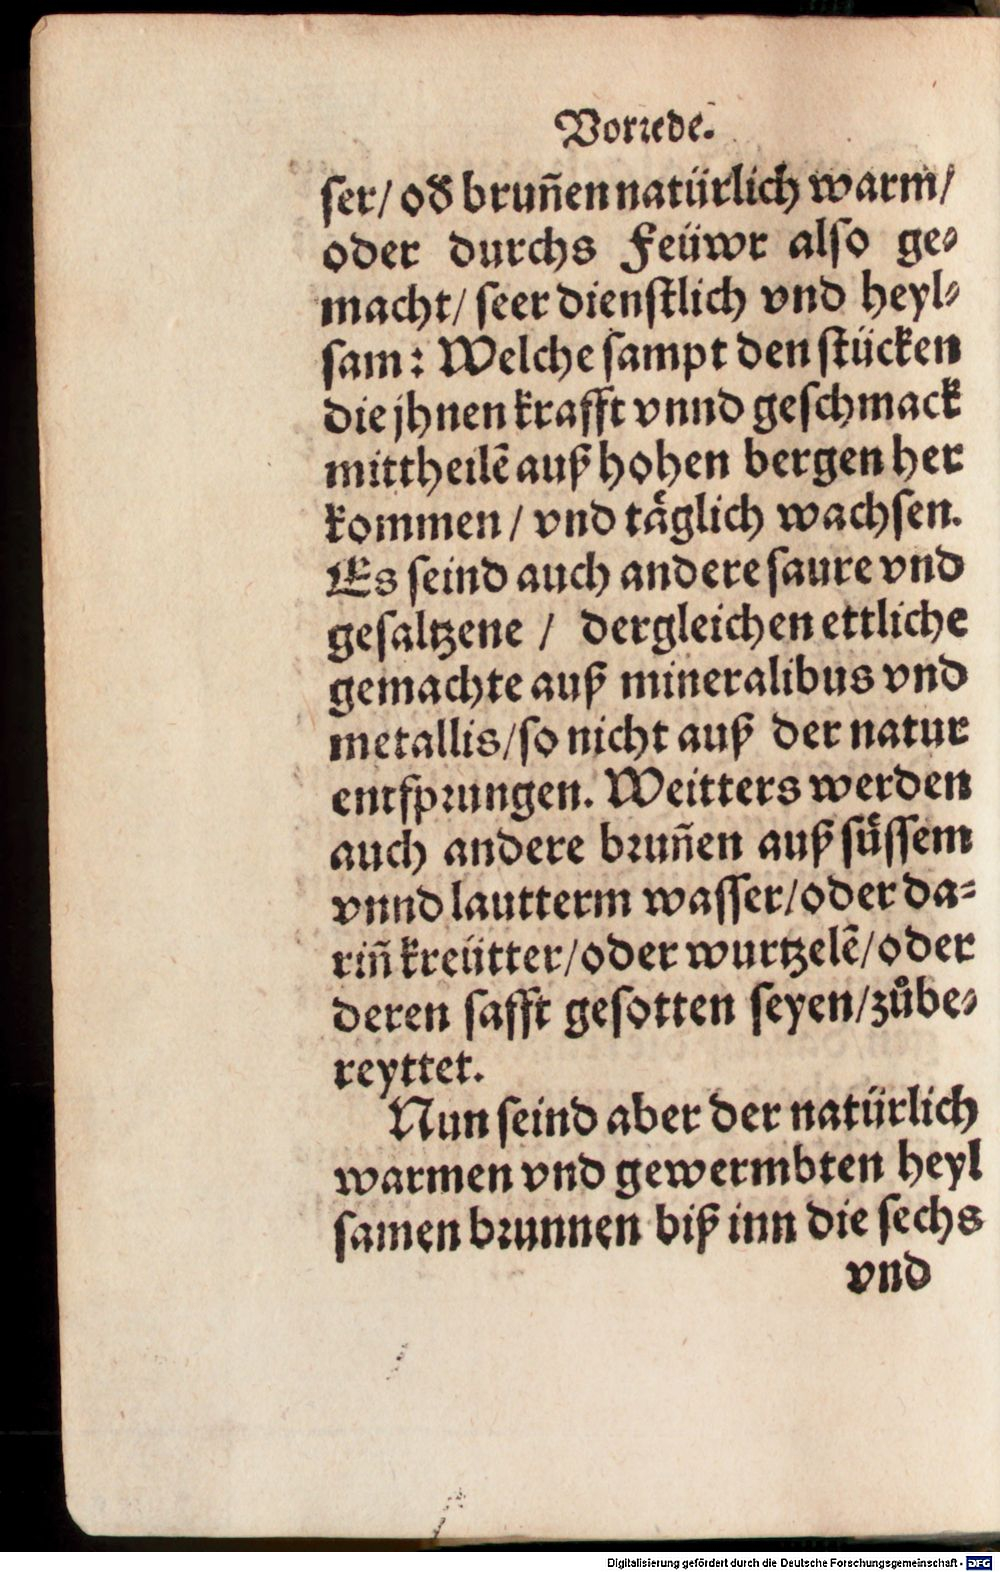 Vorꝛede.
ſer/ od̄ brun̄en natürlich warm/
oder durchs Feüwr alſo ge⸗
macht/ ſeer dienſtlich vnd heyl⸗
ſam: Welche ſampt den ſtücken
die jhnen krafft vnnd geſchmack
mittheilẽ auß hohen bergen her
kommen / vnd taͤglich wachſen.
Es ſeind auch andere ſaure vnd
geſaltzene / dergleichen ettliche
gemachte auß mineralibus vnd
metallis/ſo nicht auß der natur
entſpꝛungen. Weitters werden
auch andere bꝛun̄en auß ſuͤſſem
vnnd lautterm waſſer/oder da⸗
rin̄ kreütter/oder wurtzelẽ/oder
deren ſafft geſotten ſeyen/zůbe⸗
reyttet.
Nun ſeind aber der natürlich
warmen vnd gewermbten heyl
ſamen bꝛunnen biß inn die ſechs
vnd
Digitalisierung gefördert durch die Deutsche Forschungsgemeinschaft - DFG